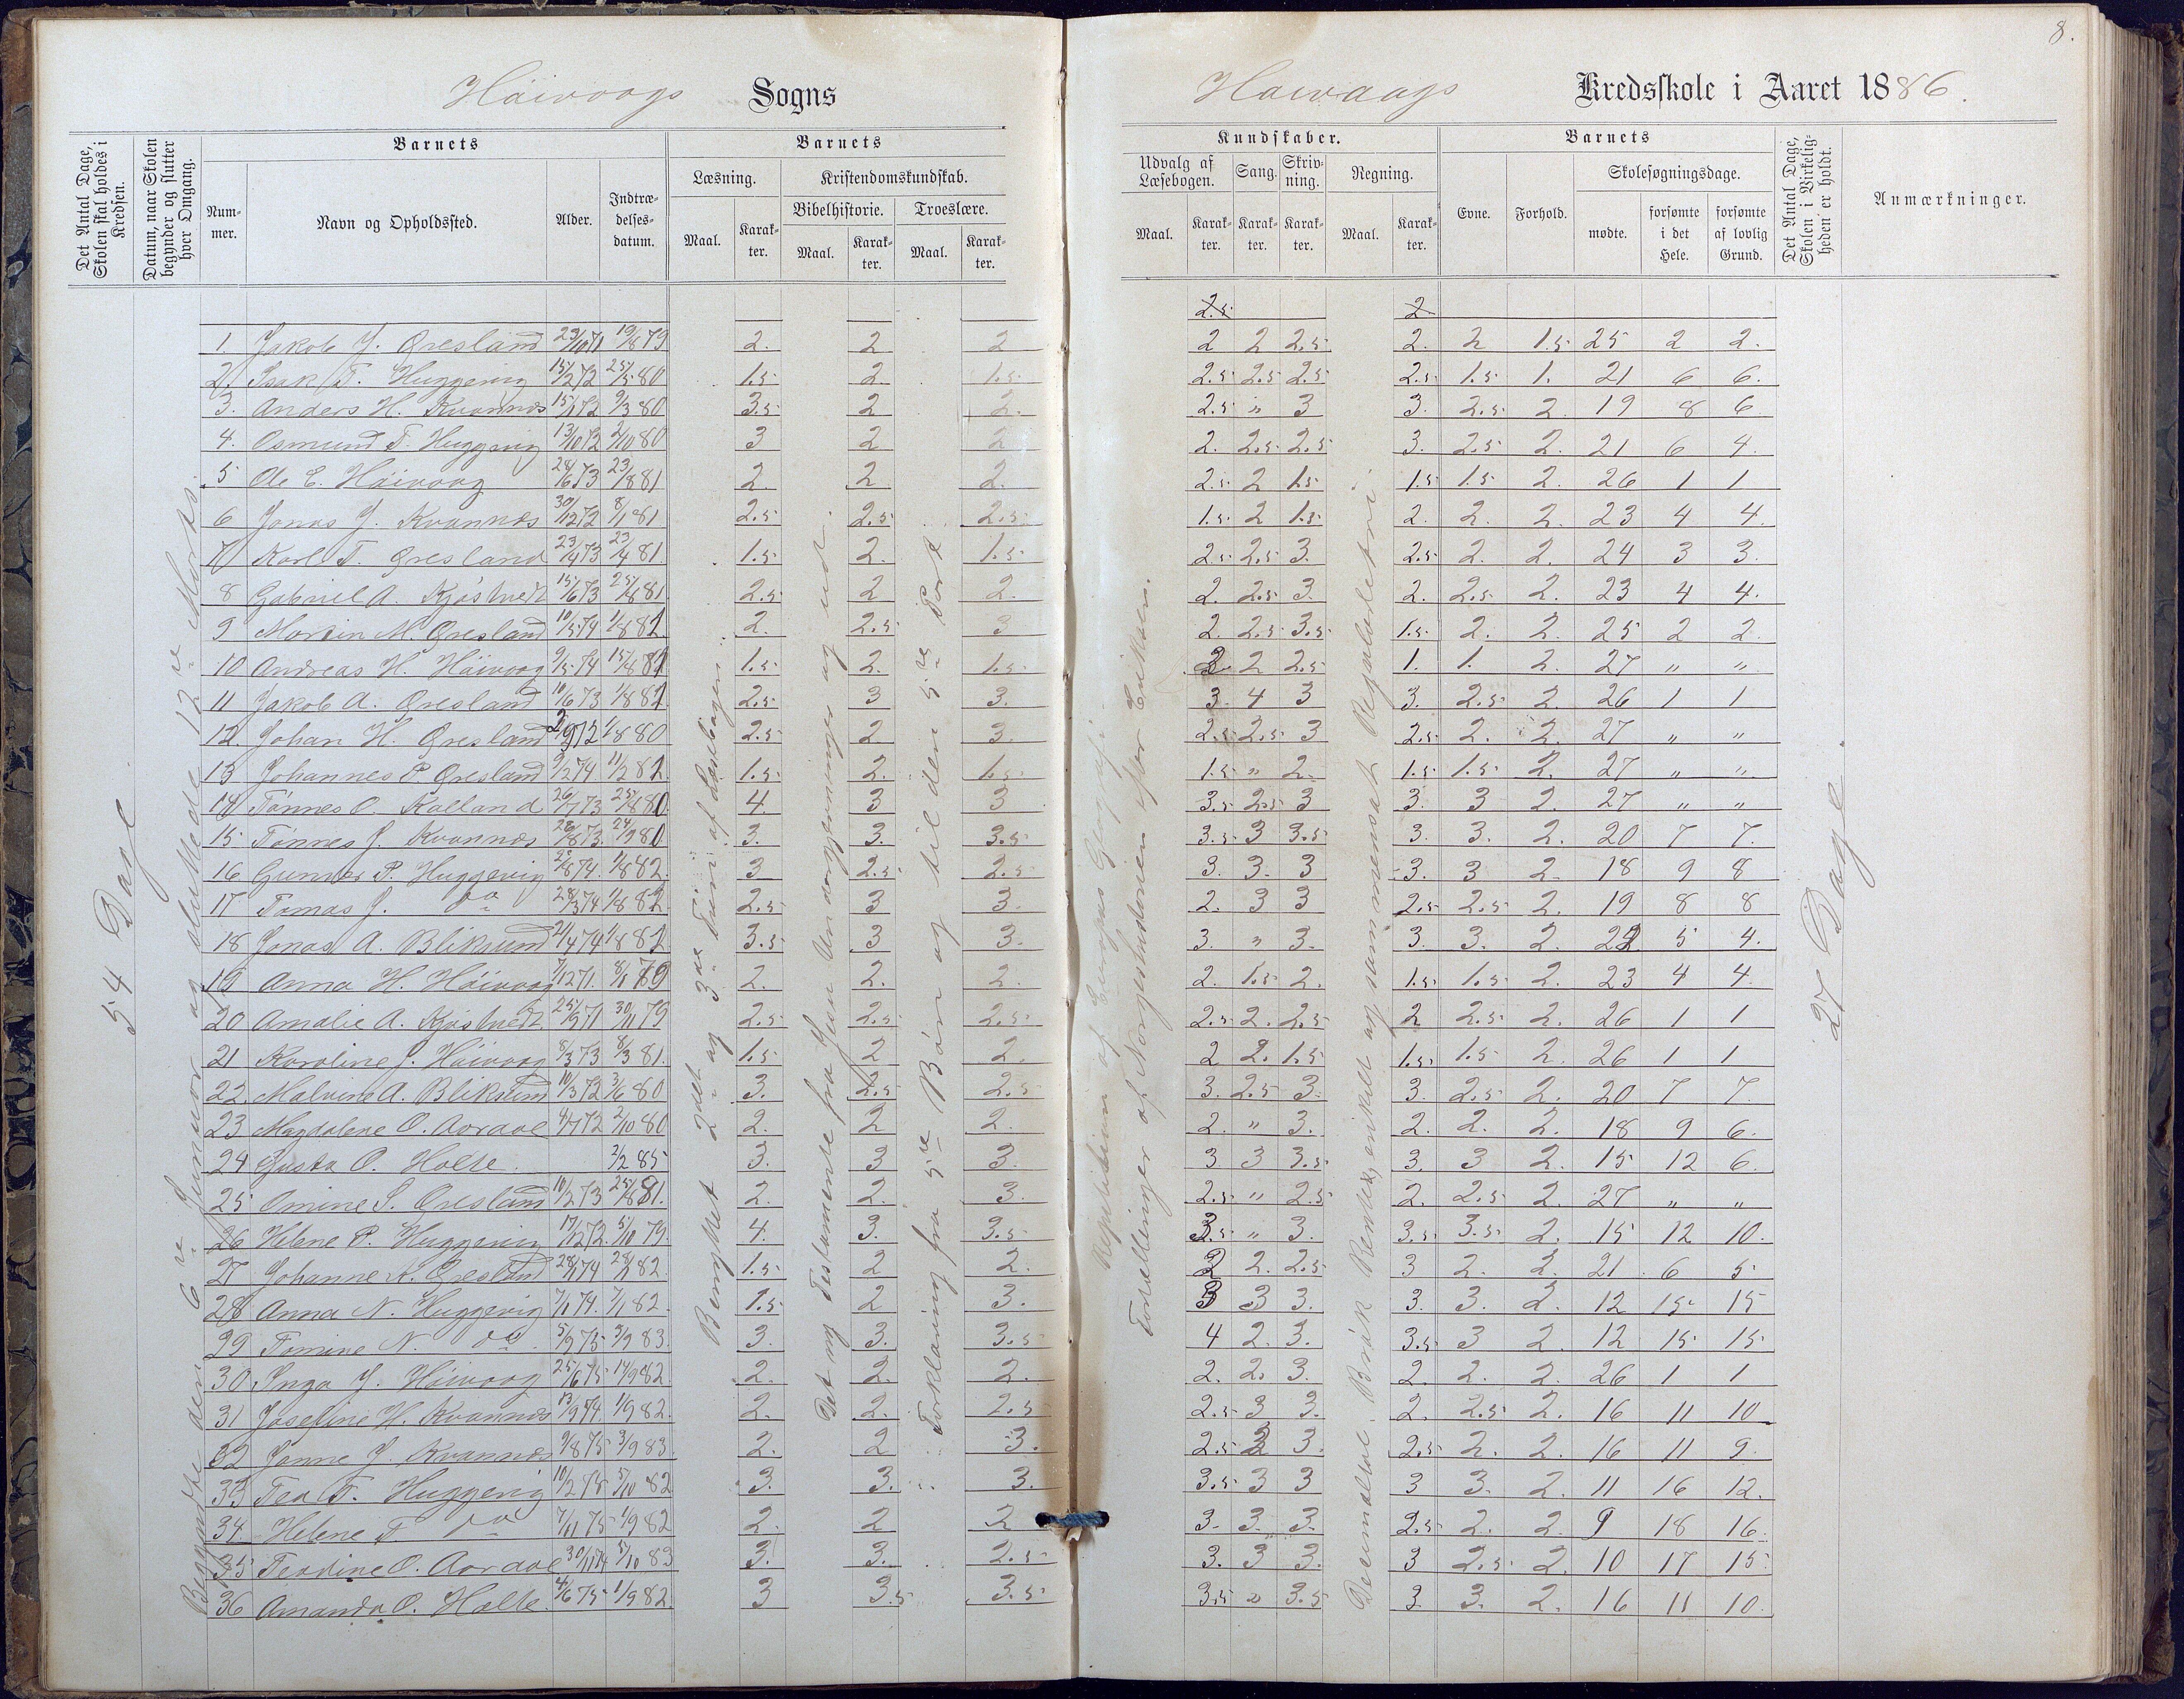 8.
Håivaags Sogns
Haivaags Kredsskole i Aaret 1886.
Det Antal Dage, Skolen skal holdes i Kredsen.
Datum, naar Skolen begynder og slutter hver Omgang.
Barnets
Nummer.
Navn og Opholdssted.
Alder.
Indtrædelsesdatum.
Barnets
Læsning.
Maal.
Karakter.
Kristendomskundskab.
Bibelhistorie.
Maal.
Karakter.
Troeslære.
Maal.
Karakter.
Kundskaber.
Udvalg af Læsebogen.
Maal.
Karakter.
Sang.
Karakter.
Skrivning.
Karakter.
Regning.
Maal.
Karakter.
Barnets
Evne.
Forhold.
Skolesøgningsdage.
mødte.
forsømte i det Hele.
forsømte af lovlig Grund.
Det Antal Dage, Skolen i Virkeligheden er holdt.
Anmærkninger.
54 Dage
Begyndte den 6te Januar og sluttede 12te Marts.
Benyttet 2det og 3die Trin af Læsebogen.
Det ny Testamente fra Jesu Undergjerninger og ud.
Forklaring fra 5te Bøn og til den 5te Part
Repetition af Europas Geografi
Fortællinger af Norgeshistorien efter Eriksen.
Decimaltal. Brøk. Renter, enkelt og sammensat Reguladetri
27 Dage.
2.5 2
1. Jakob J. Øresland 23/10 71 19/8 79 2. 2 2 2 2 2.5 2. 2 1.5 25 2 2.
2. Isak T. Huggevig 15/2 72 25/5 80 1.5 2. 1.5 2.5 2.5 2.5 2.5 1.5 1. 21 6 6.
3. Anders H. Kvannes 15/1 72 9/3 80 3.5 2 2. 2.5 " 3 3. 2.5 2. 19 8 6
4. Osmund T. Huggevig 13/10 72 2/10 80 3 2 2 2. 2.5 2.5 3. 2.5 2. 21 6 4.
5 Ole E. Håivaag 28/6 73 23/8 81 2 2 2. 2.5 2 1.5 1.5 1.5 2. 26 1 1
6 Jonas J. Kvannes 30/12 72 8/1 81 2.5 2.5 2.5 1.5 2 1.5 2. 2. 2. 23 4 4.
7 Karl T. Øresland 23/4 73 23/4 81. 1.5 2. 1.5 2.5 2.5 3. 2.5 2. 2. 24 3 3.
8 Gabriel A. Kjøstvedt 15/6 73 25/8 81 2.5 2 2. 2. 2.5 3. 2. 2.5 2. 23 4 4.
9 Martin M. Øresland 10/5 74 1/8 82. 2. 2.5 3 2. 2.5 3.5 1.5 2. 2. 25 2 2.
10 Andreas H. Håivaag 9/5 74 15/8 82 1.5 2. 1.5 2. 2 2.5 1. 1. 2. 27 " "
11 Jakob A. Øresland 10/6 73 1/8 82 2.5 3 3. 3. 4 3 3. 2.5 2. 26 1 1
12. Johan H. Øresland 1/8 80 2.5 2. 3. 2.5 2.5 3 2.5 2. 2. 27 " "
13 Johannes P. Øresland 9/2 74. 11/2 82. 1.5 2. 1.5 1.5 " 2. 1.5 1.5 2. 27 " "
14 Tønnes O. Kalland 26/7 73 25/8 80 4 3 3 3.5 2.5 3 3. 3 2. 27 " "
15 Tønnes J. Kvannes 28/8 73. 24/9 80 3. 3. 3.5 3.5 3 3.5 3. 3. 2. 20 7 7.
16 Gunder P. Huggevig 1/8 82. 3 2.5 2.5 3. 3. 3 3. 3 2. 18 9 8
17 Tomas J. do 28/3 74 1/8 82. 2.5 3 3. 2. 3 3 2.5 2.5 2. 19 8 8
18 Jonas A. Bliksund 21/4 74 1/8 82 3.5 3 3. 3. " 3. 3. 3. 2. 22 5 4.
19 Anna H. Håivaag 7/12 71. 8/1 79 2. 2. 2. 2. 1.5 2. 1.5 1.5 2. 23 4 4.
20 Amalie A. Kjøstvedt 25/9 71 30/11 79 2.5 2.5 2.5 2.5 2. 2.5 2 2.5 2. 26 1 1
21 Karoline J. Håivaag 8/3 73 8/3 81. 1.5 2 2. 2 2. 1.5 1.5 1.5 2. 26 1 1
22. Malvine A. Bliksund 10/3 72 3/6 80 3. 2.5 2.5 3. 2.5 3. 3. 2.5 2. 20 7 7.
23 Magdalene O. Aardal 4/7 72 2/10 80 2. 2 2. 2. " 3. 2. 2. 2. 18 9 6.
24 Gusta O. Holte. 2/2 85 3. 3 3. 3 3 3.5 3. 3 2. 15 12 6.
25 Omine S. Øresland 10/2 73 25/8 81. 2. 2. 3. 2.5 " 2.5 2. 2.5 2. 27 " "
26 Helene P. Huggevig 17/12 72. 5/10 79. 4. 3. 3.5 3.5 " 3. 3.5 3.5 2. 15 12 10.
27 Johanne A. Øresland 28/1 74 28/1 82. 1.5 2 2. 2 2. 2.5 3 2. 2. 21. 6 5
28 Anna N. Huggevig 7/1 74. 7/1 82. 1.5 2 3. 3 3 3. 3. 3. 2. 12 15 15
29 Tomine N. do 5/9 75 3/9 83. 3. 3. 3.5 4 2. 3. 3.5 3 2. 12 15 15
30 Inga J. Håivaag 25/6 75 14/9 82. 2. 2. 2. 2. 2. 3. 2. 2. 2. 26 1 1
31 Josefine H. Kvannes 13/9 74. 1/9 82. 2. 2. 2.5 2.5 3 3. 2. 2.5 2. 16 11 10
32 Janne J. Kvannes 9/8 75 3/9 83. 2. 2 3. 2.5 3 3. 2.5 2. 2. 16 11 9.
33 Tea T. Huggevig 5/10 82 3. 3. 3. 3.5 3 3 3 3. 2. 11 16 12.
34. Helene T. do 7/11 75 1/9 82 2. 2 2 3. 3. 3. 2.5 2. 2. 9 18 16.
35 Teodine O. Aardal 30/11 74 5/10 83 3. 3. 2.5 3. 3 3. 3 2.5 2. 10 17 15.
36 Amanda O. Holte. 4/6 75 1/9 82. 3 3.5 3.5 3.5 " 3.5 3. 3. 2. 16 11 10.